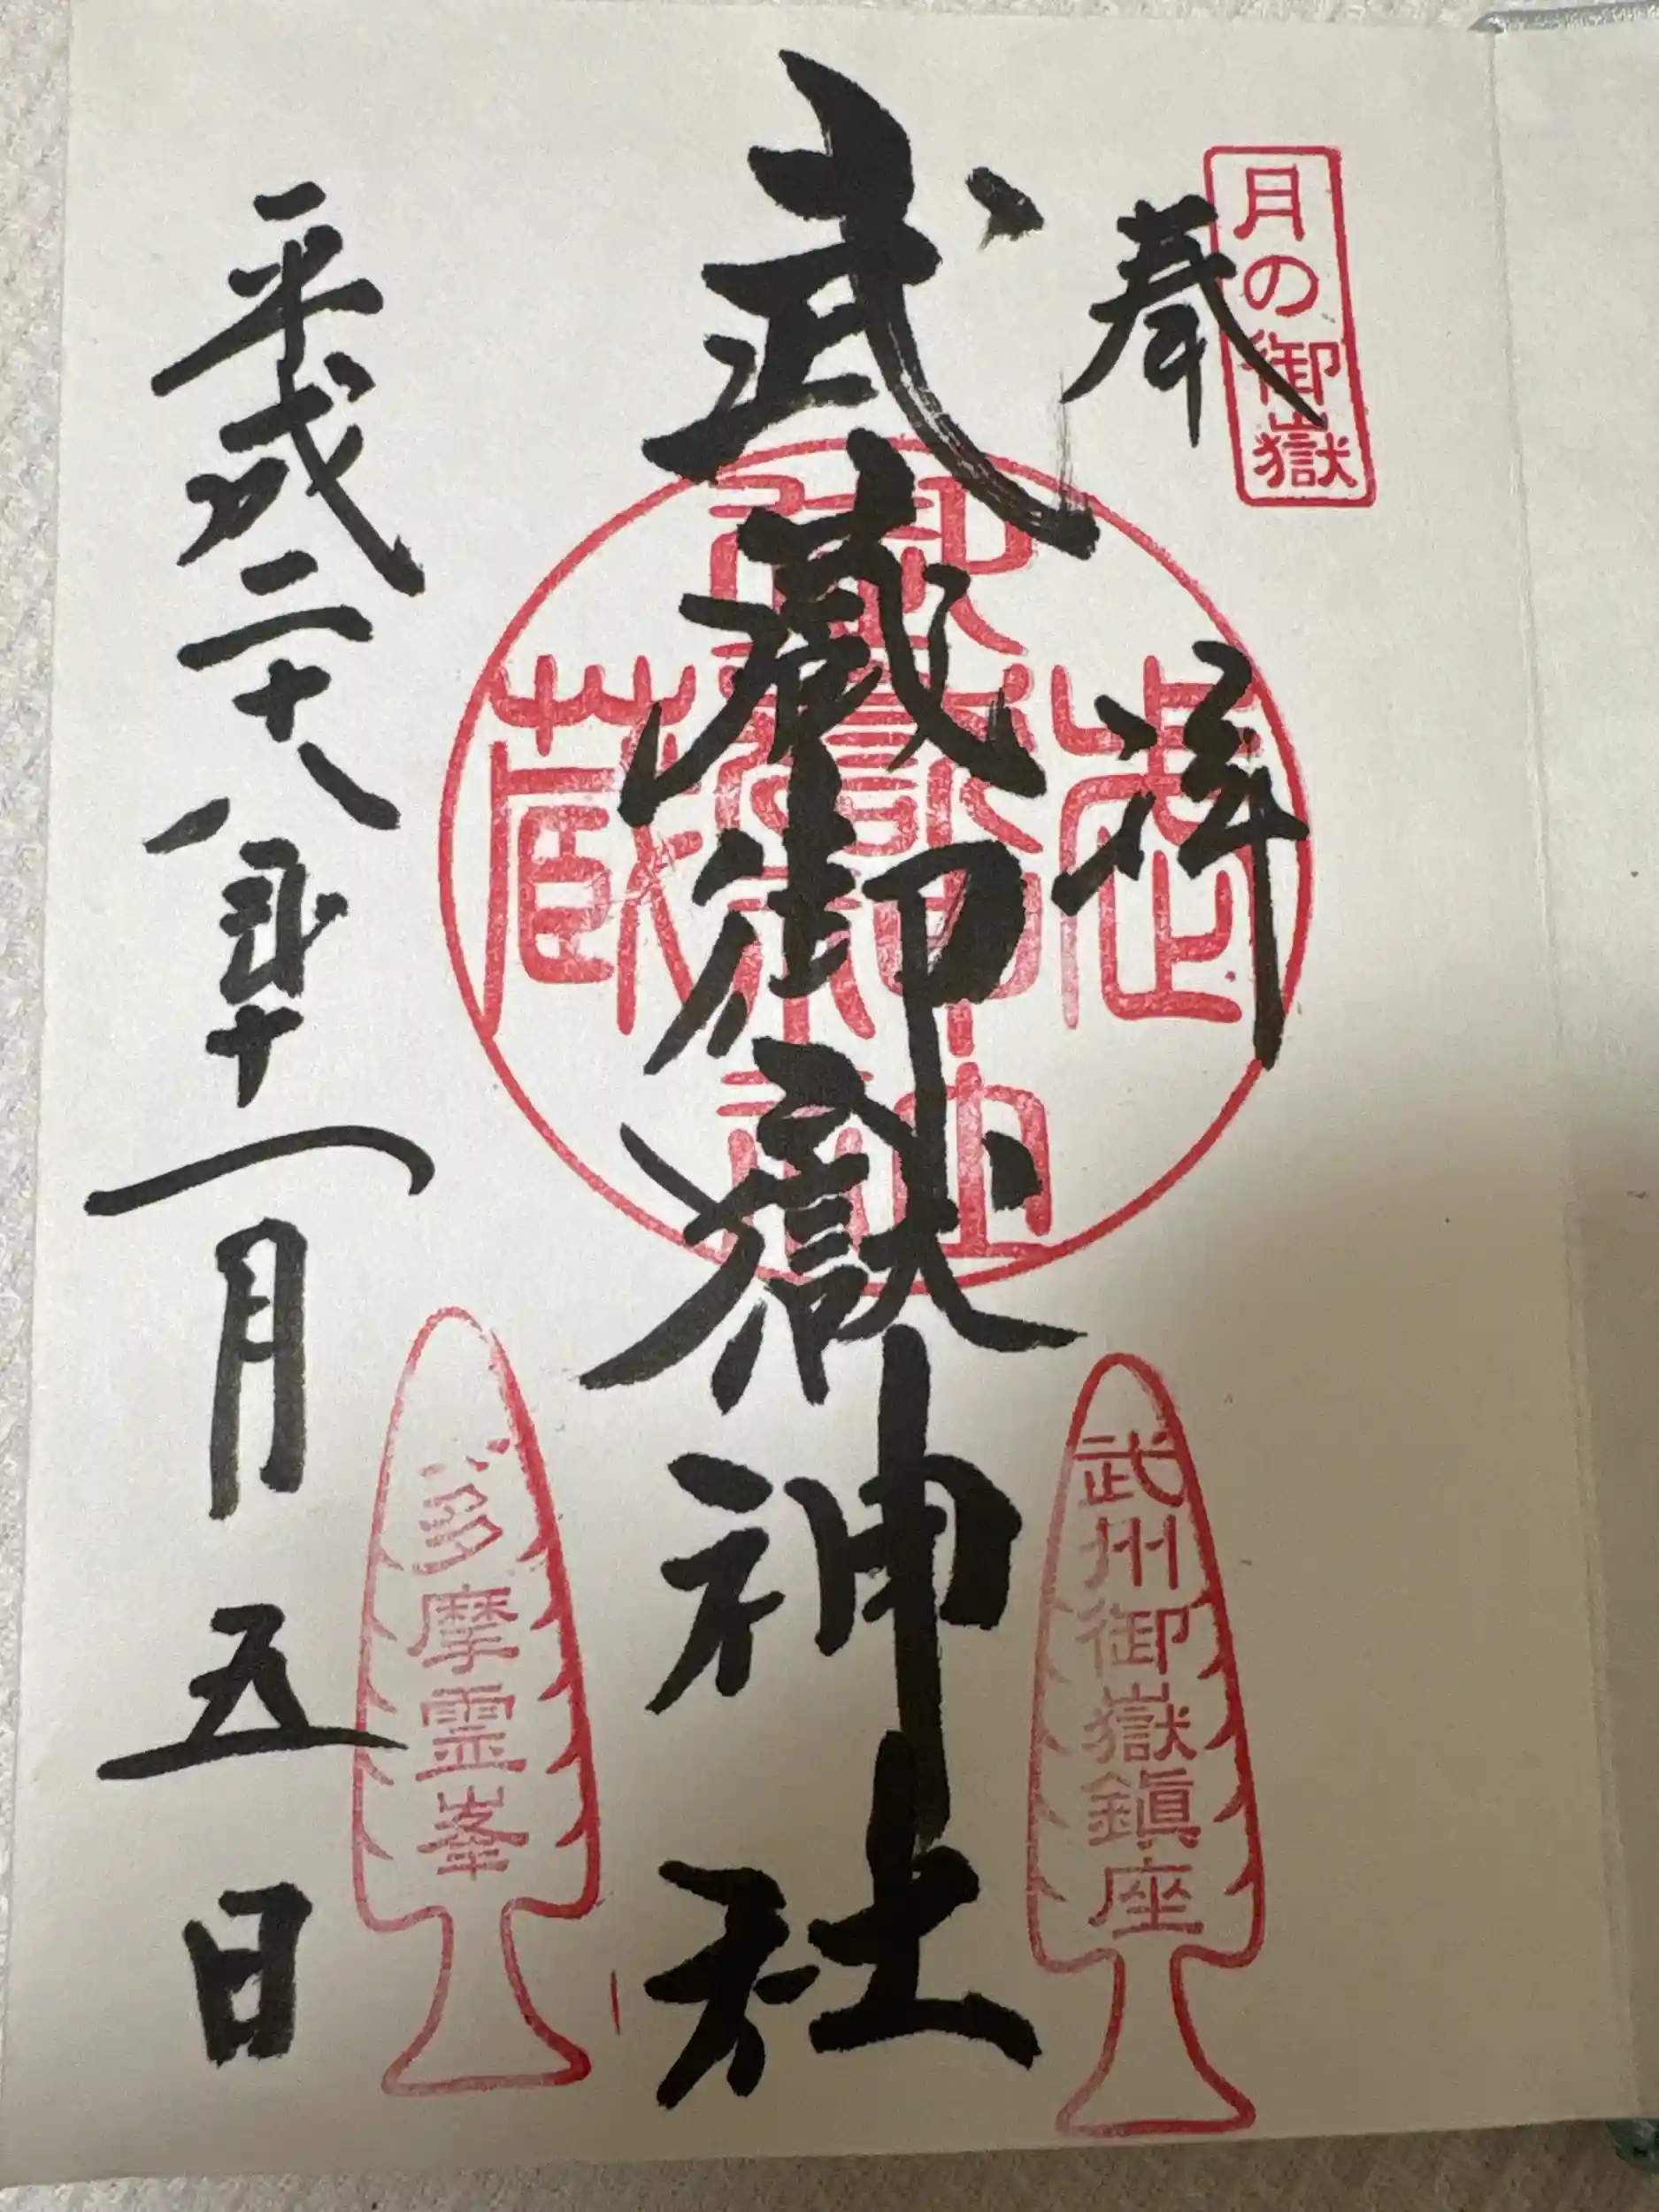 月の御嶽
奉拝
武蔵御嶽神社
武蔵御嶽神社
武州御嶽鎮座
多摩霊峯
平成二十八年十一月五日